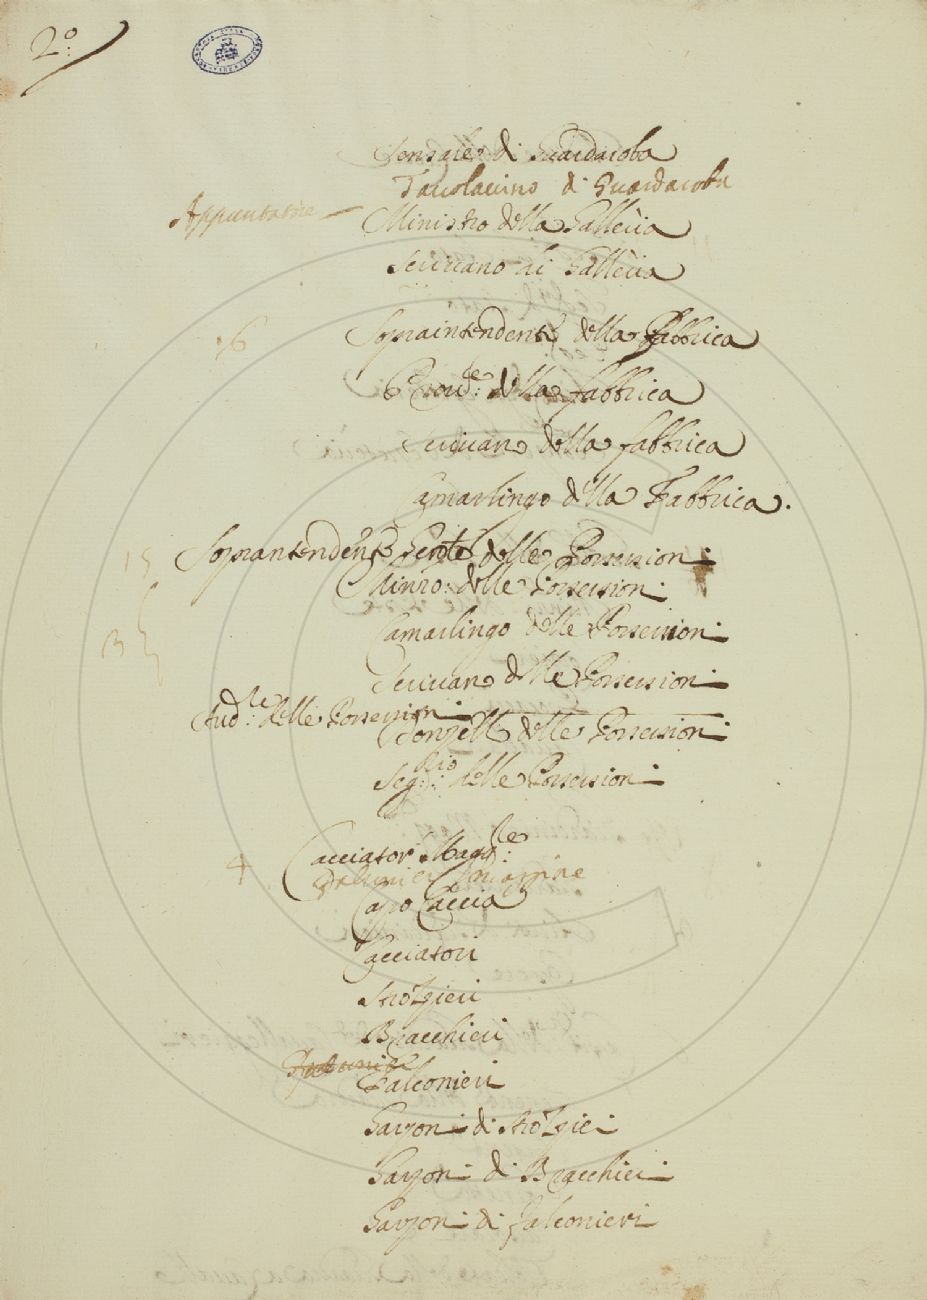 2º:
Sensale di Guardaroba
Tavolaccino di Guardaroba
Appuntatore
Ministro della Galleria
Scrivano di Galleria
6
Sopraintendente della Fabbrica
Provre: della Fabbrica
Scrivano della fabbrica
Camarlingo della Fabbrica.
15
Soprantendente Genle delle Possessioni
Minro: delle Possessioni
Camarlingo delle Possessioni
Scrivano delle Possessioni
Audre: delle Possessioni
delle Possessioni
Segrio: delle Possessioni
4
Cacciator Magre:
Capo Caccia
Cacciatori
Strozzieri
Bracchieri
Falconieri
Garzoni di Strozzieri
Garzoni di Bracchieri
Garzoni di Falconieri